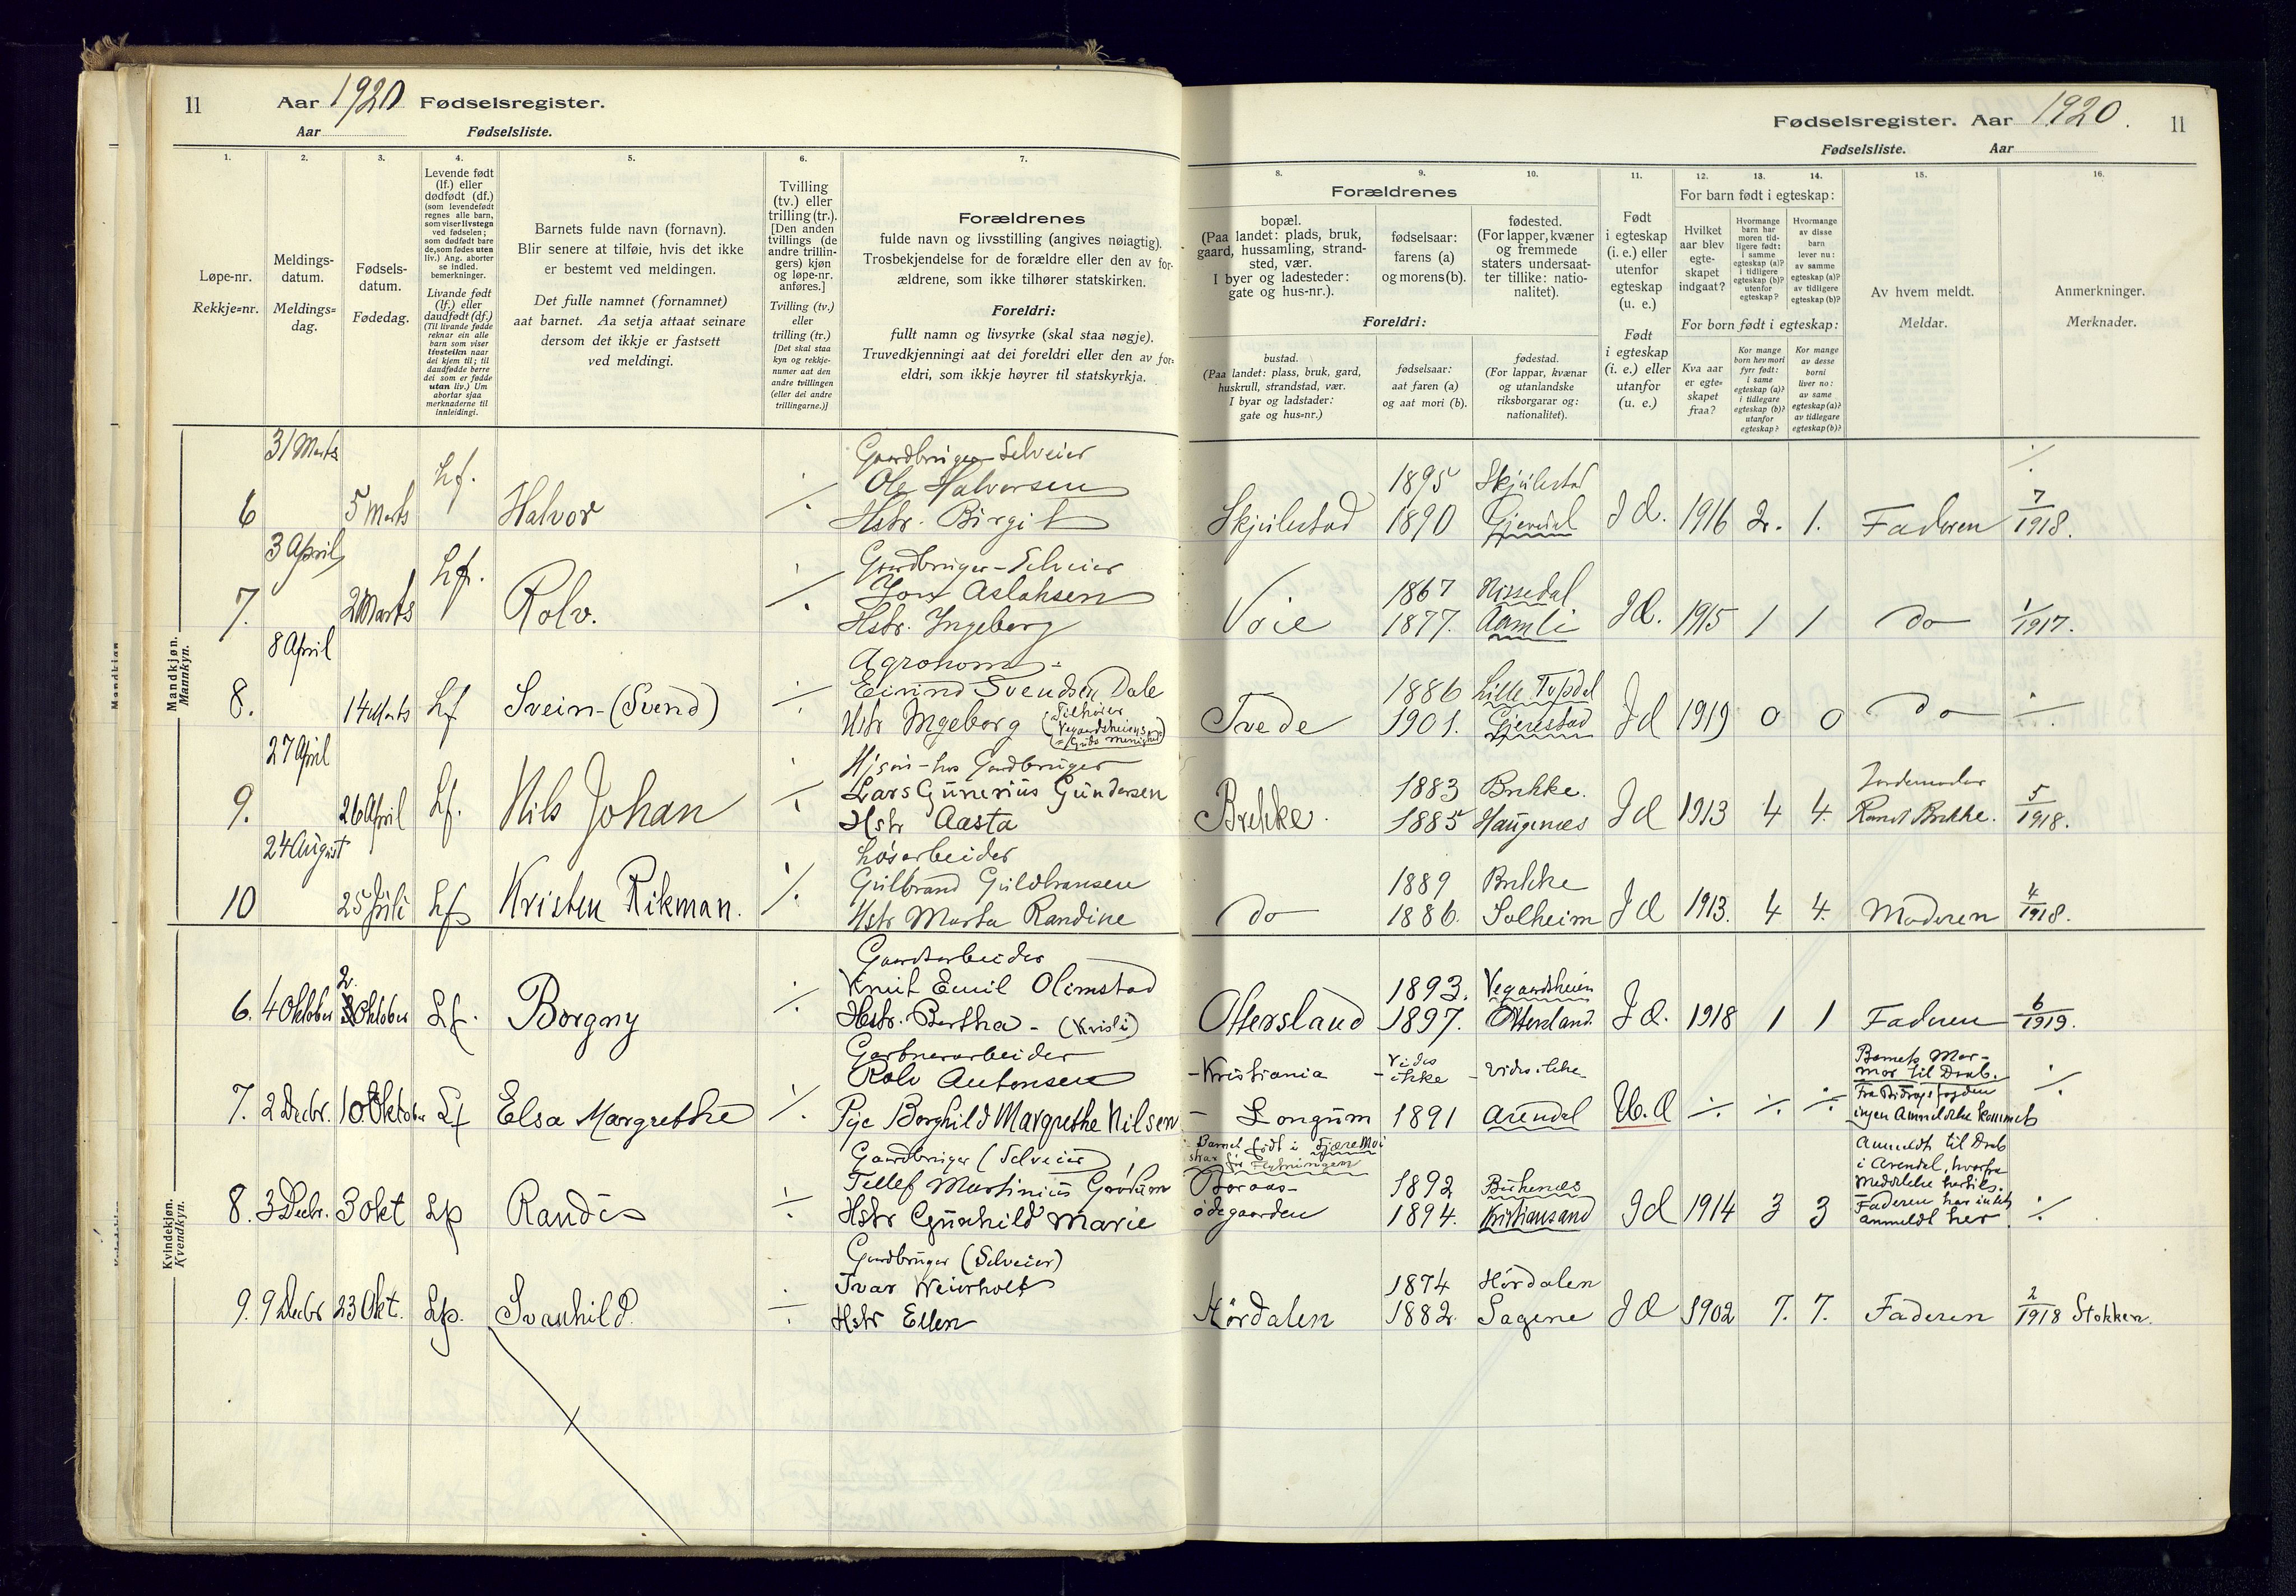 11 Aar 1920 Fødselsregister.
Aar Fødselsliste.
1.
2.
3.
4.
5.
6.
7.
Løpe-nr.
Rekkje=nr.
Meldings-
datum.
Meldings=
dag.
Fødsels-
datum.
Fødedag.
Levende født
(lf.) eller
dødfødt (df.)
(som levendefødt
regnes alle barn,
som viser livstegn
ved fødselen;
som dødfødt bare
de, som fødes uten
liv.) Ang. aborter
se indled.
bemerkninger.
Livande født
(lf.) eller
daudfødt (df.)
(Til livande fødde
reknar ein alle
barn som viser
livsteikn naar
dei kjem til; til
daudfødde berre
dei som er fødde
utan liv.) Um
abortar sjaa
merknaderne til
innleidingi.
Barnets fulde navn (fornavn).
Blir senere at tilføie, hvis det ikke
er bestemt ved meldingen.
Det fulle namnet (fornamnet)
aat barnet. Aa setja attaat seinare
dersom det ikkje er fastsett
ved meldingi.
Tvilling
(tv.) eller
trilling (tr.).
[Den anden
tvillings (de
andre trillin-
gers) kjøn
og løpe-nr.
anføres.]
Tvilling (tv.)
eller
trilling (tr.)
[Det skal staa
kyn og rekkje-
numer aat den
andre tvillingen
(eller dei andre
trillingarne.)]
Forældrenes
fulde navn og livsstilling (angives nøiagtig).
Trosbekjendelse for de forældre eller den av for-
ældrene, som ikke tilhører statskirken.
Foreldri:
fullt namn og livsyrke (skal staa nøgje).
Truvedkjenningi aat dei foreldri eller den av for-
eldri, som ikkje høyrer til statskyrkja.
Mandkjøn.
Mannkyn.
31 Marts
Gaardbruger Selveier
Lf.
Ole Halvorsen
6 5 Marts Halvor ./. Hstr. Birgit
3 April
Gaardbruger-Selveier
Lf.
Jon Aslaksen
7. 2 Marts Rolv. ./. Hstr. Ingeborg
8 April
Agronom
Eivind Svendsen Dale
8. 14 Marts Lf Svein-(Svend) ./. Hstr Ingeborg (Tilhører
Vegaardsheiens
Guds menighed)
27 April
Hjson-hos Gardbruger
Lars Gunerius Gundersen
9. 26 April Lf. Nils Johan ./. Hstr Aasta
24 August
Løsarbeider
Gulbrand Guldbransen
10 25 Juli Lf Kristen Rikman. ./. Hstr Marta Randine
Kvindekjøn.
Kvendkyn.
Gaardsarbeider
2.
Knut Emil Olimstad
6. 4 Oktober 3 Oktober Lf. Borgny ./. Hstr. Bertha - (Kristi)
Gartnerarbeider
Rolv Antonsen
7. 2 Decbr. 10 Oktober Lf Elsa Margrethe ./. Pige Borghild Margrethe Nilsen
Gaardbruger (Selveier)
Tellef Martinius
8. 3 Decbr. 3 Okt Lf Randi ./. Hstr Gunhild Marie
Gaardbruger (Selveier)
Ivar Weierholt
9. 9 Decbr 23 Okt. Lf. Svanhild. ./. Hstr Ellen
Fødselsregister. Aar 1920. 11
Fødselsliste. Aar
8.
9.
10.
11.
12.
13.
14.
15.
16.
Forældrenes
bopæl.
(Paa landet: plads, bruk,
gaard, hussamling, strand-
sted, vær.
I byer og ladesteder:
gate og hus-nr.).
fødselsaar:
farens (a)
og morens (b).
fødested.
(For lapper, kvæner
og fremmede
staters undersaat-
ter tillike: natio-
nalitet).
Foreldri:
bustad.
(Paa landet: plass, bruk, gard,
huskrull, strandstad, vær.
I byar og ladstader:
gate og hus=nr.)
fødselsaar:
aat faren (a)
og aat mori (b).
fødestad.
(For lappar, kvænar
og utanlandske
riksborgarar og:
nationalitet).
Født
i egteskap
(i. e.) eller
utenfor
egteskap
(u. e.)
Født
i egteskap
(i. e.) eller
utanfor
(u. e.)
For barn født i egteskap:
Hvilket
aar blev
egte-
skapet
indgaat?
Hvormange
barn har
moren tid-
ligere født:
i samme
egteskap (a)?
i tidligere
egteskap (b)?
utenfor
egteskap?
Hvormange
av disse
barn
lever nu:
av samme
egteskap (a)?
av tidligere
egteskap (b)?
For born født i egteskap:
Kva aar
er egte=
skapet
fraa?
Kor mange
born hev mori
fyrr født:
i same
egteskap (a)?
i tidlegare
egteskap (b)?
utanfor
egteskap?
Kor mange
av desse
borni
liver no:
av same
egteskap (a)?
av tidlegare
egteskap (b)?
Av hvem meldt.
Meldar.
Anmerkninger.
Merknader.
1895 Skjulestad ./.
Skjulestad 1890 Gjerstad I E. 1916 2. 1. Faderen 7/1918.
1867 Nissedal
Voie 1877. Aamli I E. 1915 1 1 do 1/1917.
1886 Lille Topdal
Tvede 1901. Gjerestad I E 1919 0 0 do ./.
1883 Brekke. Jordemoder
Brekke. 1885 Haugenes I E 1913 4 4. Randi Brekke. 5/1918.
1889 Brekke
do 1886. Solheim I E 1913. 4 4. Moderen 4/1918.
1893. Vegaardsheien
Ottersland 1897. Ottersland. I E. 1918 1 1 Faderen 6/1919.
-Kristiania - Vides
ikke - Vides ikke
Barnets Mor-
mor til Daab.
Fra Bidragsfogden
ingen Anmeldelse kommet
- Longum 1891 Arendal U.E ./. ./. ./. ./.
Barnet født i Fjære Moi
strax før Flytningen
Boraas-
ødegaarden
1892
1894. Kristiansand I E 1914 3 3
Anmeldt til Daab
i Arendal, hvorfra
Meddelelse hertil.
Faderen har intet
anmeldt her ./.
1874 Hørdalen
Hørdalen 1882. Sagene I E 1902 7. 7. Faderen 2/1918 Stokken.